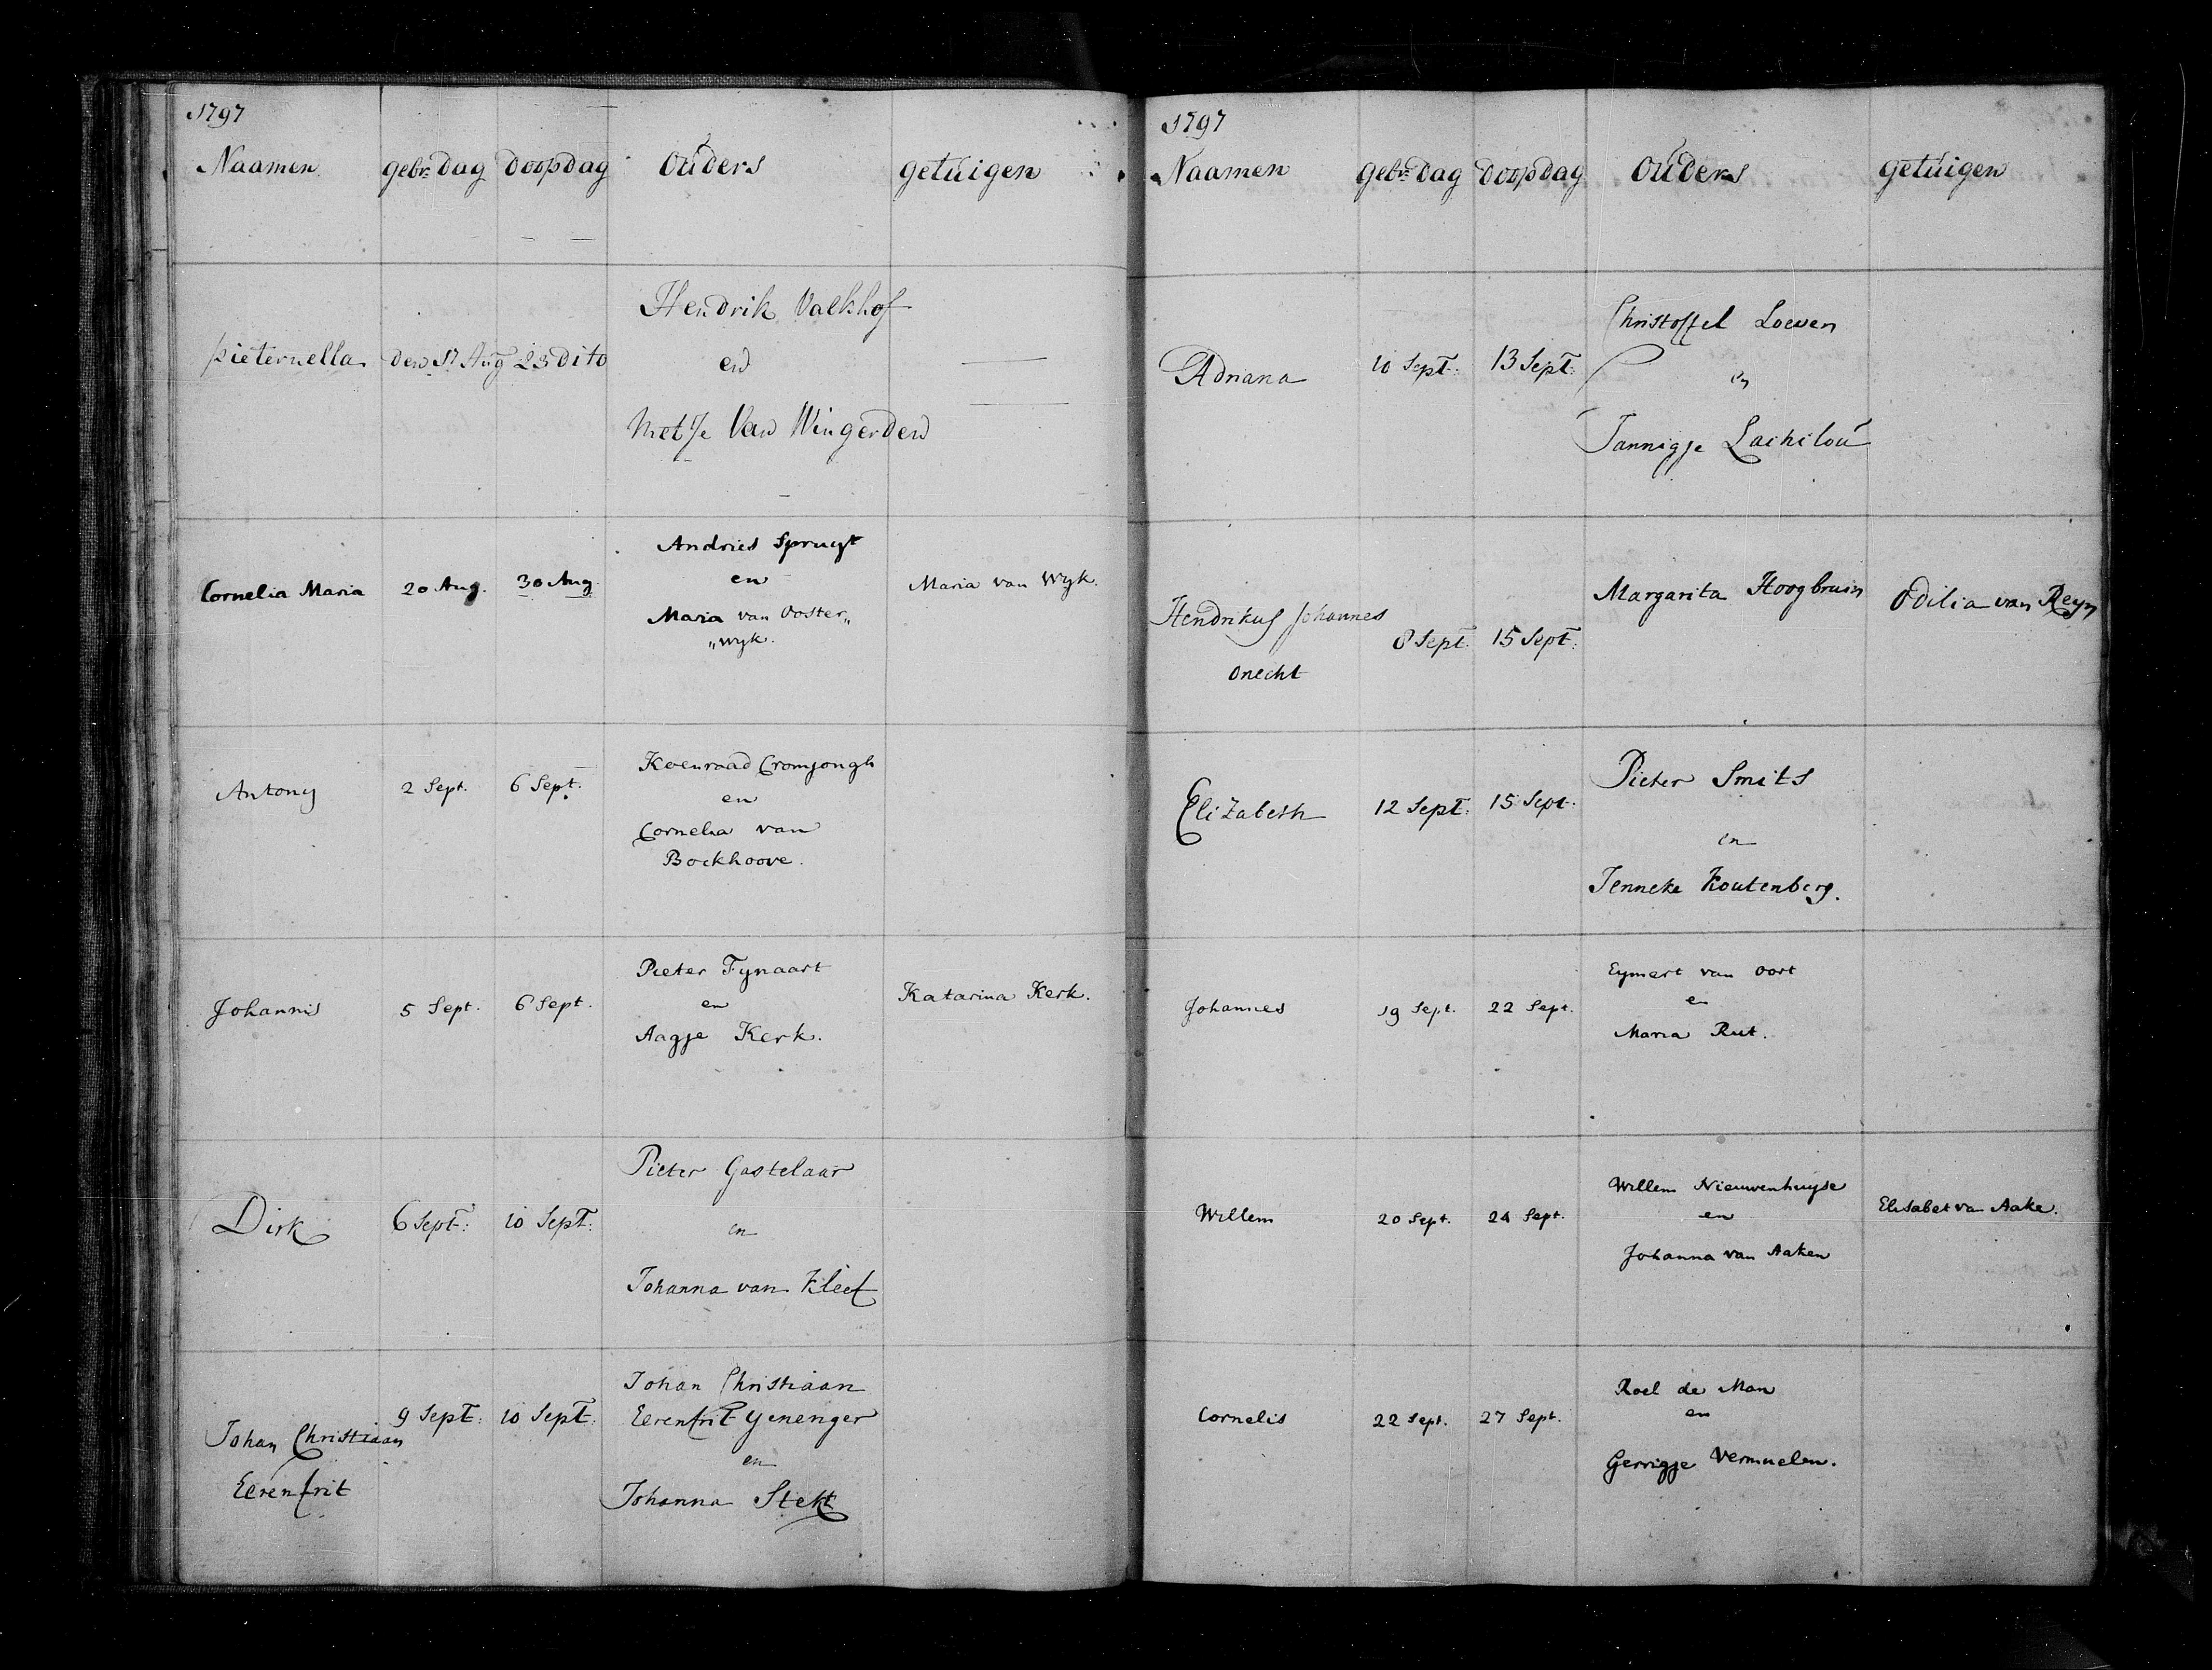 1797
Naamen gebr: dag doopdag Ouders getuigen
Hendrik Valkhof
pieternella den 17 Aug 23 dito en
Metje Van Wingerden
Andries Spruyt
Cornelia Maria 20 Aug. 30 Aug. en Maria van Wyk.
Maria van Ooster„
„wyk.
Koenraad Cromjongh
Antony 2 Sept. 6 Sept. en
Cornelia van
Bockhoove.
Pieter Fynaart
Johannis 5 Sept. 6 Sept. en Katarina Kerk.
Aagje Kerk.
Pieter Gastelaar
Dirk 6 Sept: 10 Sept: en
Johanna van Kleef
Johan Christiaan
9 Sept: 10 Sept: Eerenfrit Yenenger
Johan Christiaan en
Eerenfrit Johanna Stekt
1797
Naamen gebr: dag doopdag Ouders getuigen
Christoffel Loeven
Adriana 10 Sept: 13 Sept: en
Jannigje Lachilou
Margarita Hoogbruin Odilia van Reyn
Hendrikus Johannes 8 Sept: 15 Sept:
onecht
Pieter Smits
Elizabeth 12 Sept: 15 Sept: en
Jenneke Koutenberg.
Eymert van Oort
Johannes 19 Sept. 22 Sept. en
Maria Rut.
Willem Nieuwenhuyse
Willem 20 Sept. 24 Sept. en Elisabet van Aake.
Johanna van Aaken
Roel de Man
Cornelis 22 Sept. 27 Sept. en
Gerrigje Vermuelen.